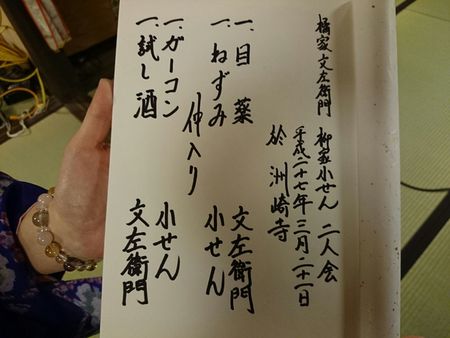 橘家文左衛門 柳家小せん 二人会
平成二十七年三月二十一日
於 洲崎寺
一、目薬 文左衛門
一、ねずみ 小せん
仲入り
一、ガーコン 小せん
一、試し酒 文左衛門